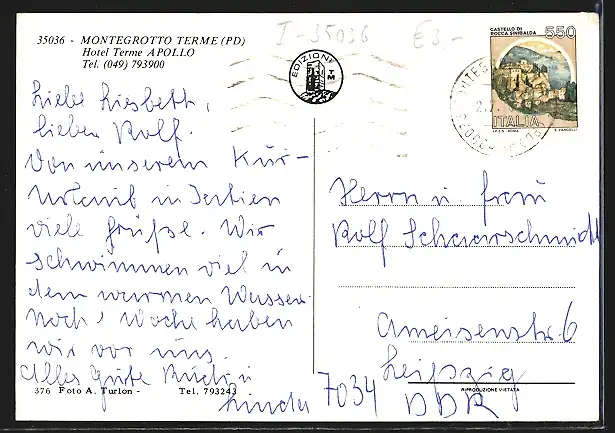 35036 - MONTEGROTTO TERME (PD)
Hotel Terme APOLLO
Tel. (049) 793900
I-35036
E3.-
EDIZIONE
TM
CASTELLO DI
ROCCA SINIBALDA
550
ITALIA
I.P.Z.S. - ROMA
E. VANGELLI
Liebe Liesbett,
lieben Rolf.
Von unserem Kur-
Urlaub in
viele Grüße. Wir
schwimmen viel in
dem warmen Wasser.
Noch 1 Woche haben
wir vor uns.
Alles Gute
Linda
Herrn u Frau
Rolf Schaarschmidt
Ameisenstr. 6
7034 Leipzig
DDR
376 Foto A. Turlon - Tel. 793243
RIPRODUZIONE VIETATA